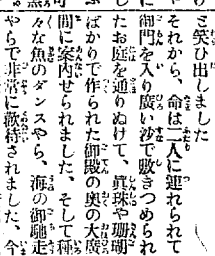 と笑ひ出しました
それから、命は二人に連れられて
御門を入り廣い沙で敷きつめられ
たお庭を通りぬけて、眞珠や珊瑚
ばかりで作られた御殿の奥の大廣
間に案内せられました、そして種
々な魚のダンスやら、海の御馳走
やらで非常に歡待されました、今